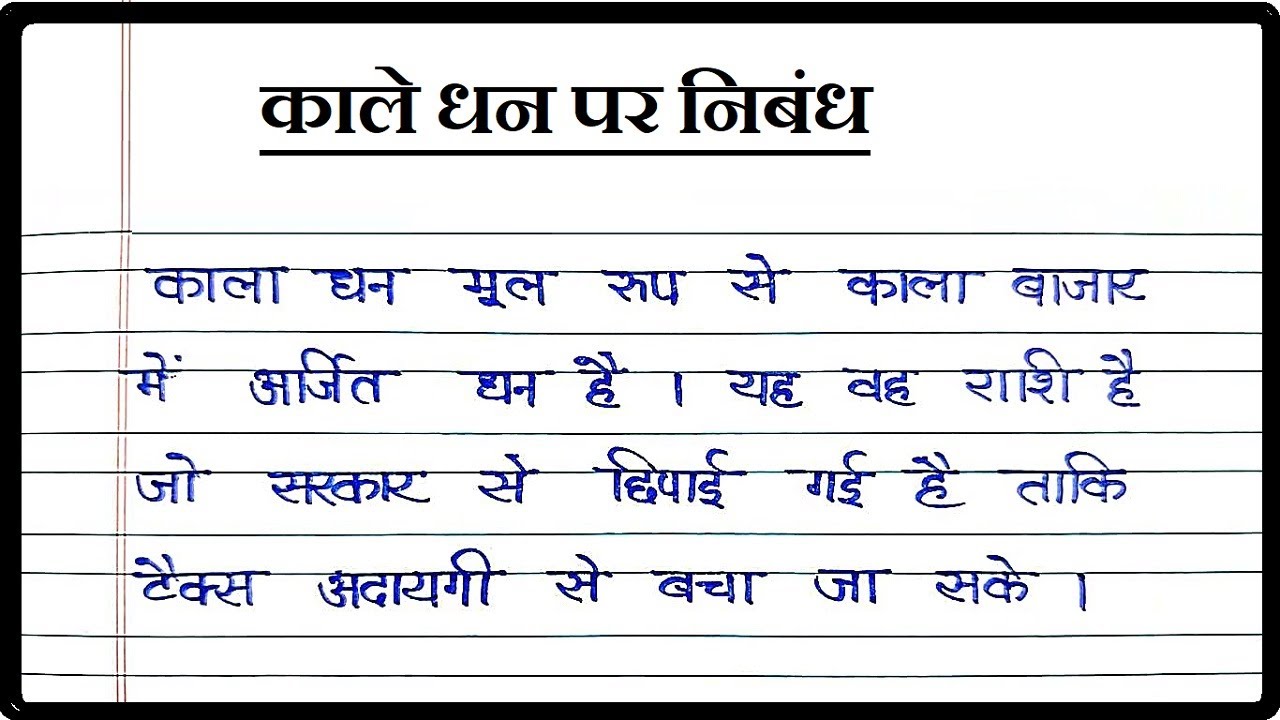 काले धन पर निबंध
काला धन मूल रुप से काला बाजार
में अर्जित धन है । यह वह राशि है
जो सरकार से छिपाई गई है ताकि
टैक्स अदायगी से बचा जा सके ।